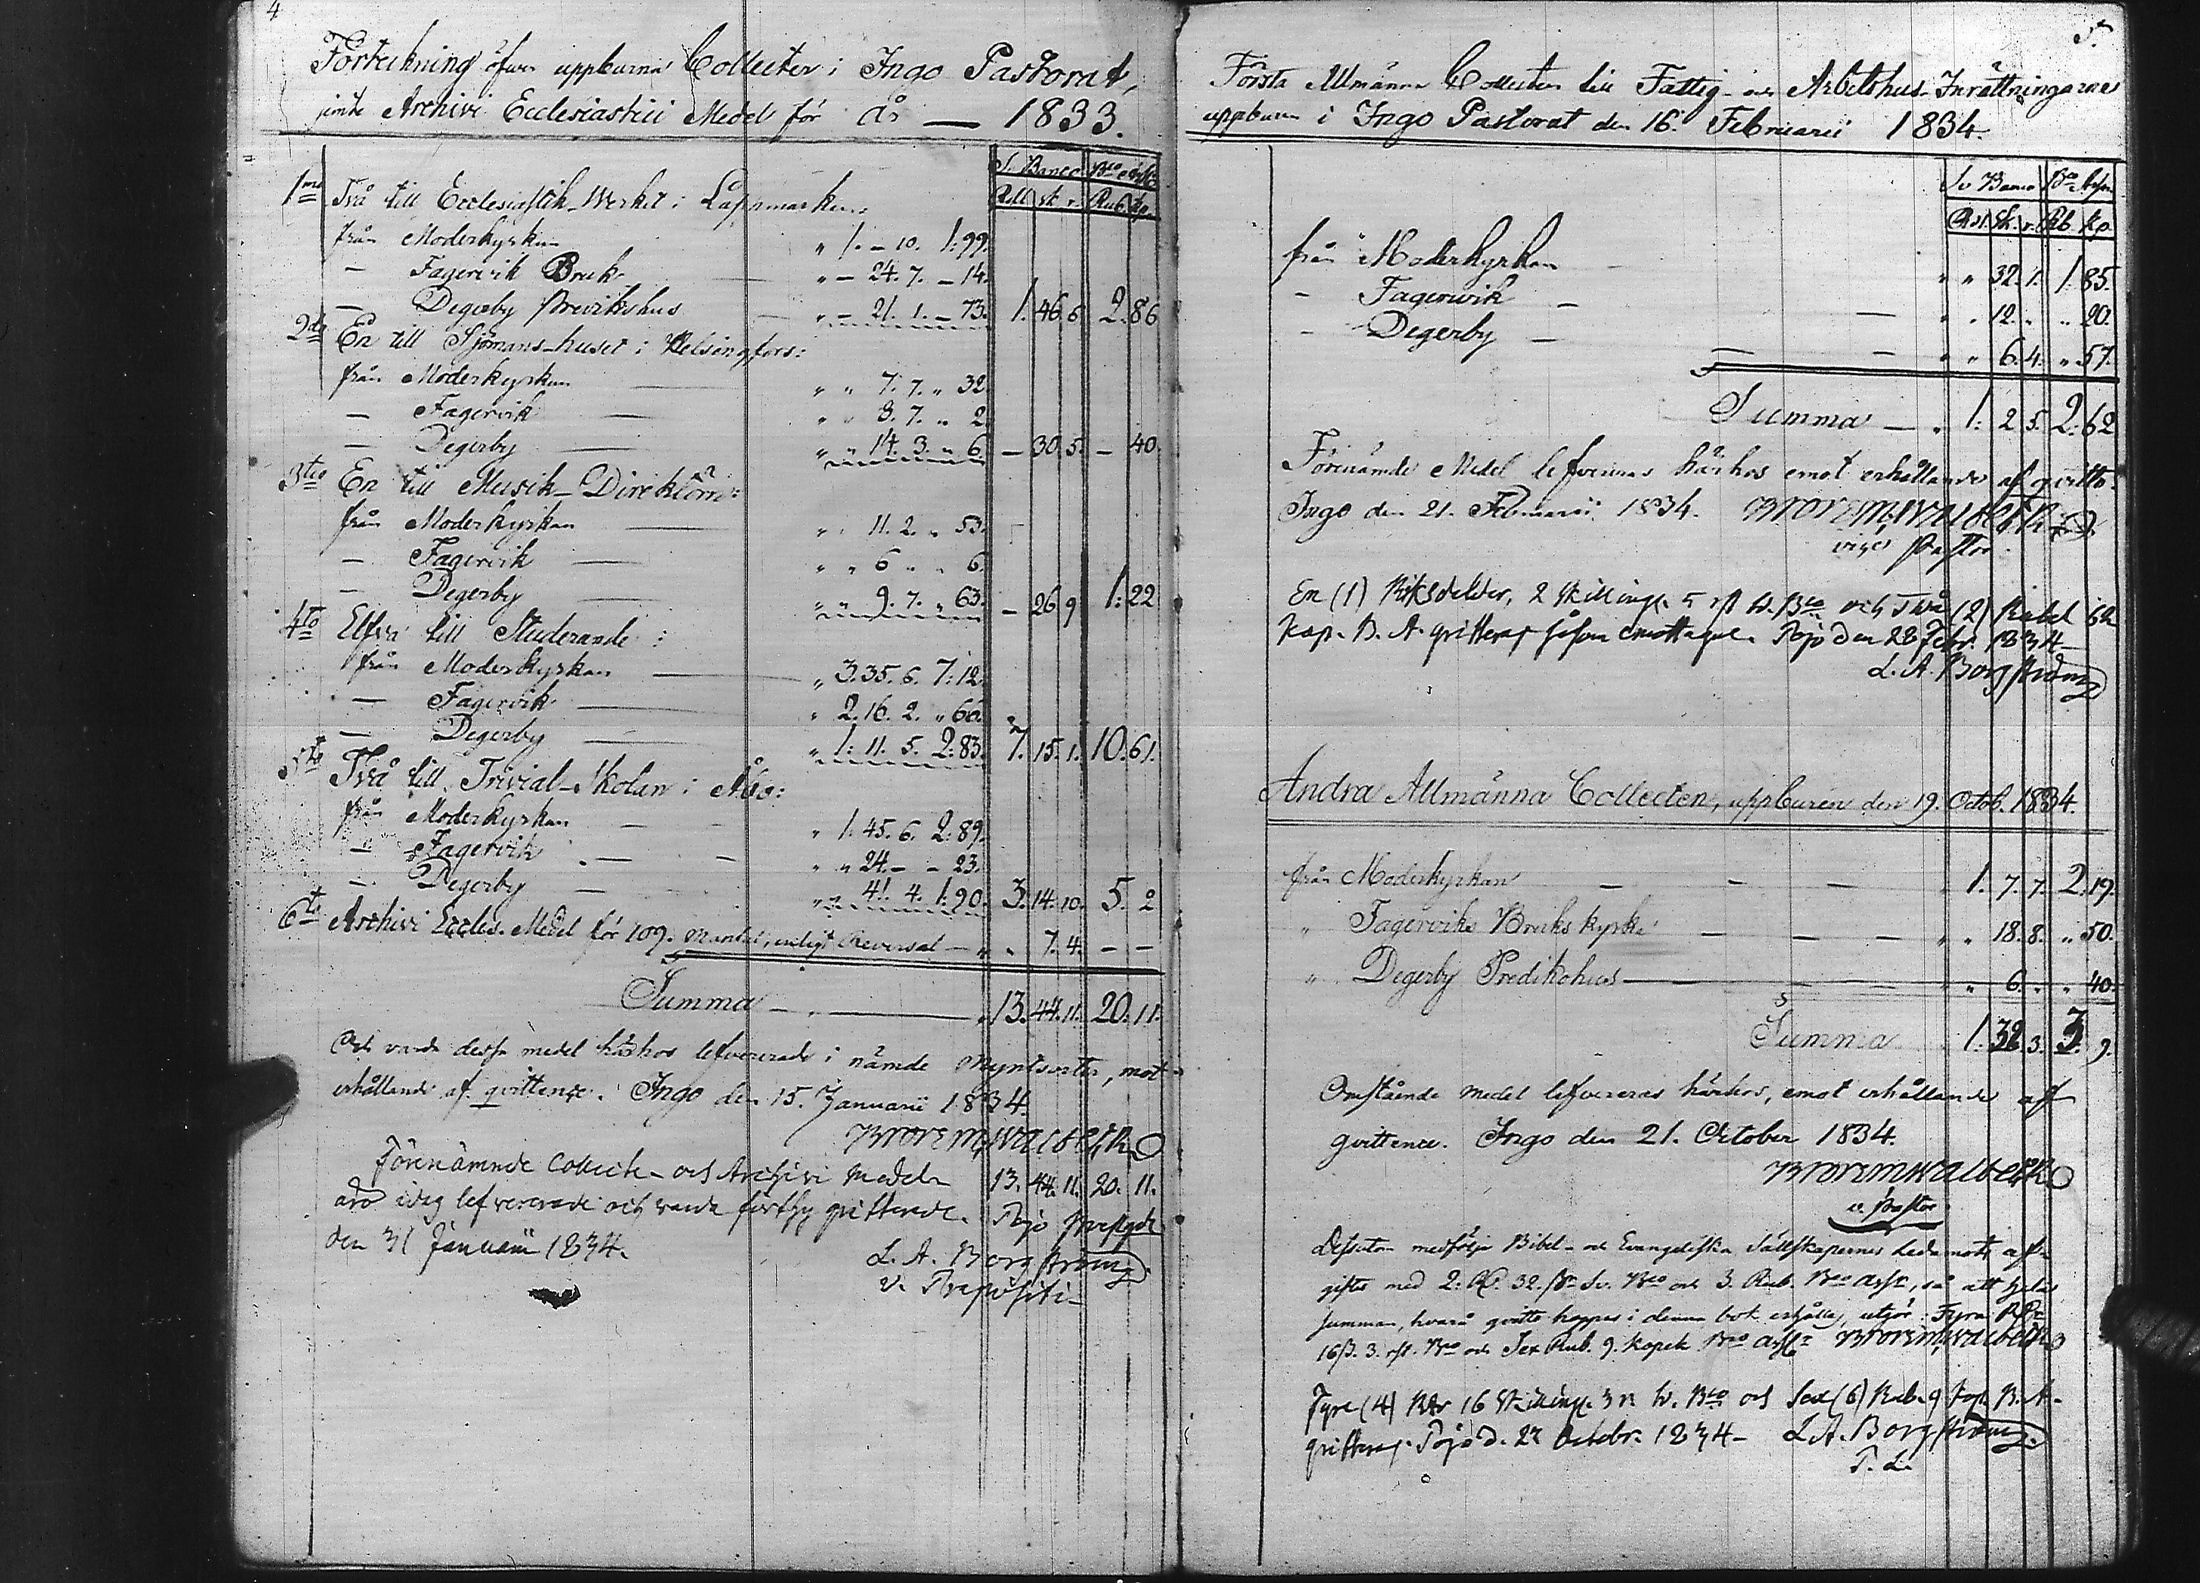 4
Förteckning öfver uppburna Collecter i Ingo Pastorat,
jemte Archivi Ecclesiastici Medel för år — 1833.
S. Banco Bco Assr
Rdl. sk. r. Rub. kp.
1mo Två till Ecclesiastik-Werket i Lappmarken:
från Moderkyrkan " 1. – 10. 1: 99.
— Fagervik Bruk — " – 24. 7. – 14.
— Degerby — " – 21. 1. – 73. 1. 46. 6. 2: 86
2do En till Sjömans-huset i Helsingfors:
från Moderkyrkan — " " 7. 7. " 32.
— Fagervik — " " 8. 7. " 2.
— Degerby — " " 14. 3. " 6. — 30. 5. — 40.
3tio En till Musik-Direktörn:
från Moderkyrkan — " " 11. 2. " 53.
— Fagervik — " " 6 " " 6.
— Degerby — " " 9. 7. " 63. — 26. 9. 1: 22
4to Elfva till Studerande:
från Moderkyrkan — " 3. 35. 6. 7: 12.
— Fagervik — " 2. 16. 2. " 66.
— Degerby — " 1: 11. 5. 2: 83. 7. 15. 1. 10. 61.
5to Två till Trivial-Skolan i Åbo:
från Moderkyrkan — " 1. 45. 6. 2: 89.
— Fagervik — " " 24. – – 23.
— Degerby — " " 41. 4. 1. 90. 3. 14. 10. 5. 2
6to Archivi Eccles. Medel för 109. Mantal, enligt Reversal — " " 7. 4. – –
Summa — 13. 44. 11. 20. 11.
Och varda dessa medel härhos lefvererade i nämde Myntsorter, mot
erhållande af qvittence. Ingo den 15. Januarii 1834.
Förenämnde Collect- och Archivi Medel 13. 44. 11. 20. 11.
äro idag lefvererade och varda förthy qvitterade. Pojo
den 31 Januarii 1834.
L. A. Borgström
v. Præpositi
5.
Första Allmänna Collecten till Fattig- och Arbetshus-Inrättningarne
uppburen i Ingo Pastorat den 16. Februarii 1834.
Sv Banco Bco Assr
Rdl. Sk. r. Rb. kp.
från Moderkyrkan — " " 32. 1. 1. 85.
— Fagervik — " " 12. " " 20.
— Degerby — " " 6. 4. " 57.
Summa — " 1: 2. 5. 2: 62
Förenämde Medel lefvereras härhos emot erhållande af qvitto.
Ingo den 21. Februarii 1834.
vice Pastor.
En (1) Riksdaler, 2 skilling. 5 rst Sv. Bco och Två (2) Rubel 62
Kop. B. A. qvitteras såsom emottagne. Pojo den 28 Febr. 1834 —
L. A. Borgström
Andra Allmänna Collecten, uppburen den 19. Octob. 1834.
från Moderkyrkan — — — " 1. 7. 7. 2. 19.
" Fagerviks Bruks kyrka — — — " " 18. 8. " 50.
" Degerby Predikohus — " " 6. " " 40.
Summa " 1. 32. 3. 3. 9.
Omstående medel lefvereras härhos, emot erhållande af
qvittence. Ingo den 21. October 1834.
v. Pastor.
Dessutom medfölja Bibel- och Evangeliska Sällskapernes Ledamots af-
gifter med 2. Rd. 32. sk. Sv. Bco och 3. Rub. Bco Assr, så att hela
summan, hvarå qvitto hoppas i denna bok erhålla, utgör: Fyra Rdr
16 sk. 3. rst. Bco och Sex Rub. 9. Kopek Bco Assr
Fyra (4) Rdr 16 Skilling. 3 rs Sv. Bco och Sex (6) Rub. 9 kop. B. A.
qvitteras. Pojo d. 27 Octobr. 1834 — L. A. Borgström